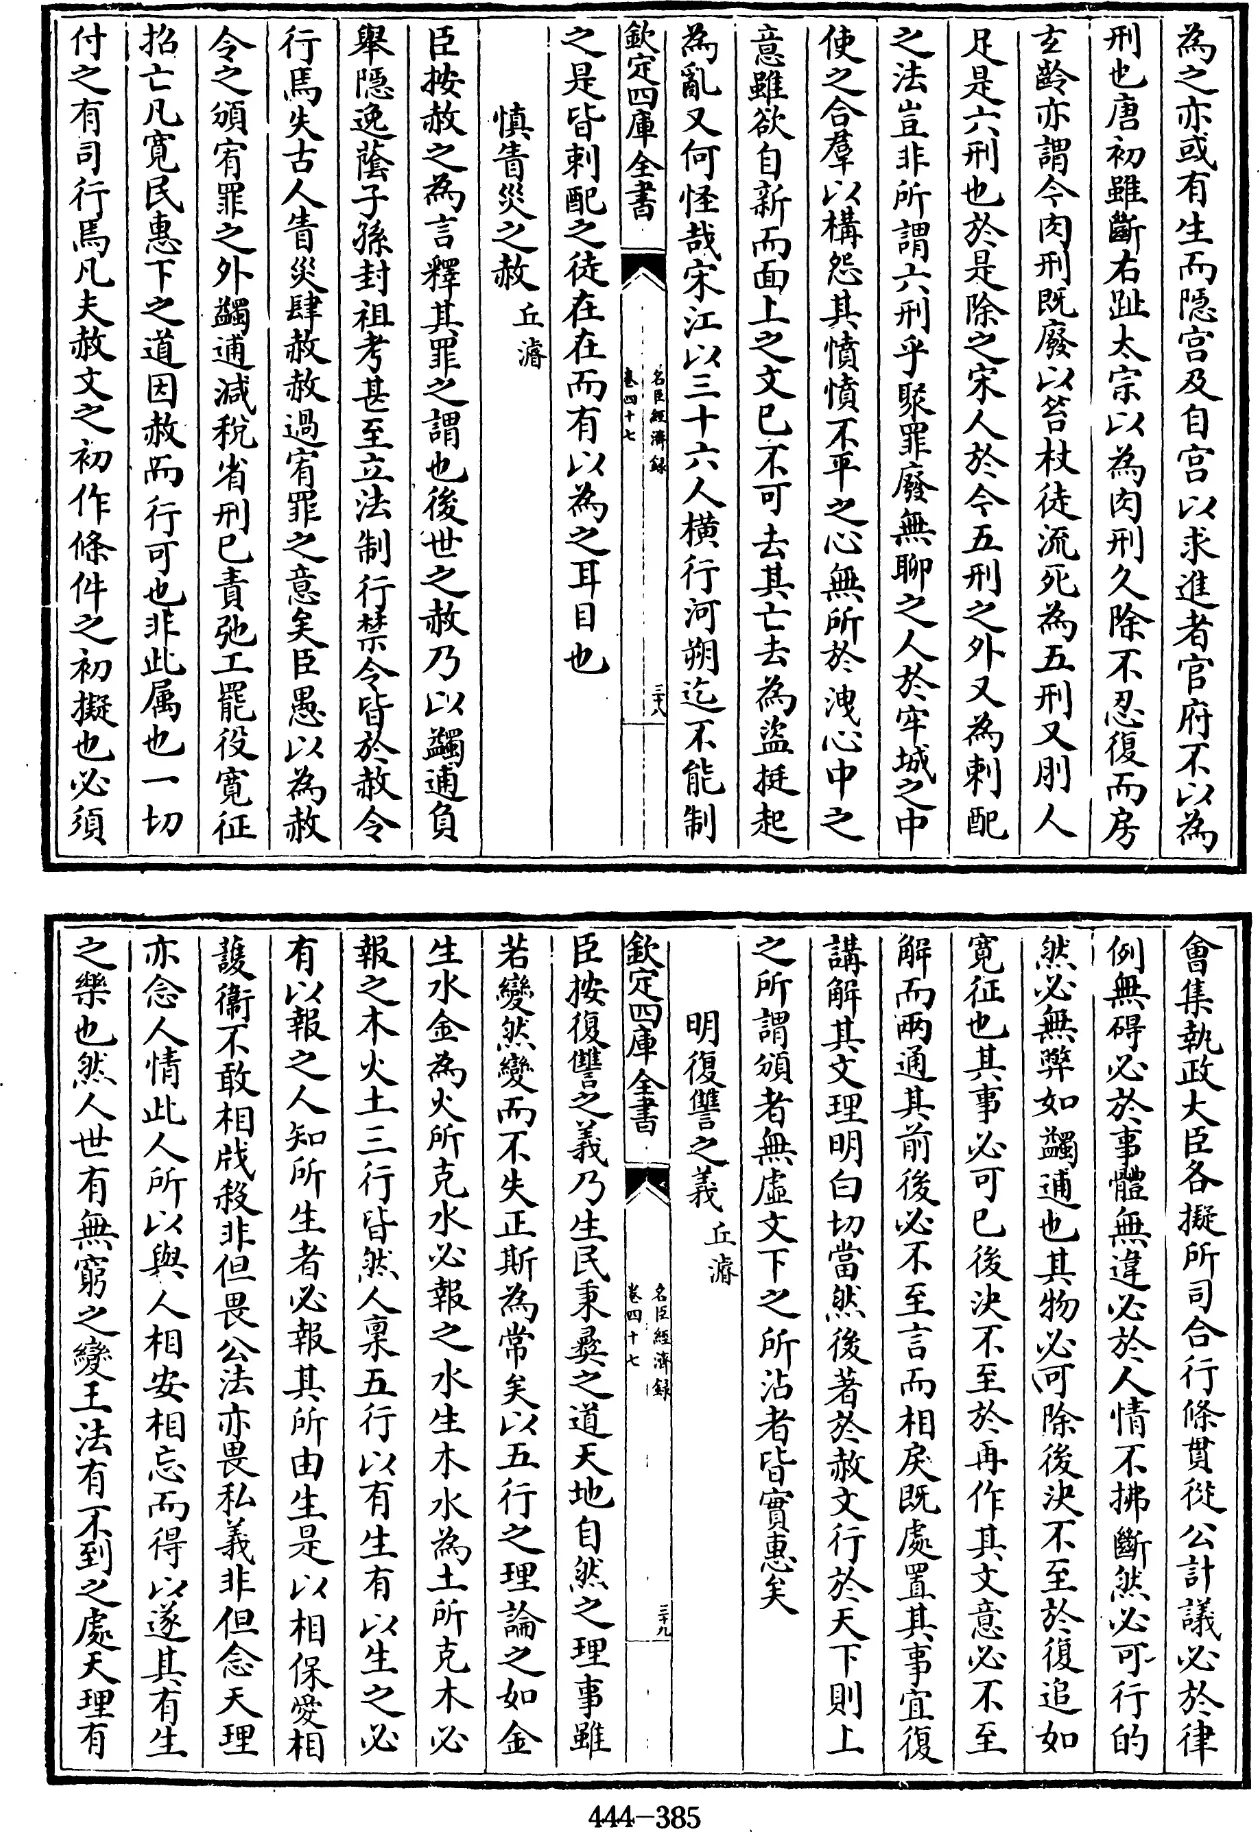 為之亦或有生而隠宫及自宫以求進者官府不以為
刑也唐初雖斷右趾太宗以為肉刑久除不忍復而房
玄齡亦謂今肉刑既廢以笞杖徒流死為五刑又刖人
足是六刑也於是除之宋人於今五刑之外又為刺配
之法豈非所謂六刑乎聚罪廢無聊之人於牢城之中
使之合羣以構怨其憤憤不平之心無所於洩心中之
意雖欲自新而面上之文已不可去其亡去為盗挺起
為亂又何怪哉宋江以三十六人横行河朔迄不能制
欽定四庫全書
名臣經濟録
卷四十七
三十八
之是皆刺配之徒在在而有以為之耳目也
慎眚災之赦 丘濬
臣按赦之為言釋其罪之謂也後世之赦乃以蠲逋負
舉隠逸蔭子孫封祖考甚至立法制行禁令皆於赦令
行焉失古人眚災肆赦赦過宥罪之意矣臣愚以為赦
令之頒宥罪之外蠲逋減稅省刑已責弛工罷役寛征
招亡凡寛民惠下之道因赦而行可也非此属也一切
付之有司行焉凡夫赦文之初作條件之初擬也必須
會集執政大臣各擬所司合行條貫從公計議必於律
例無碍必於事體無違必於人情不拂斷然必可行的
然必無弊如蠲逋也其物必可除後決不至於復追如
寛征也其事必可已後決不至於再作其文意必不至
解而兩通其前後必不至言而相戾既處置其事宜復
講解其文理明白切當然後著於赦文行於天下則上
之所謂頒者無虛文下之所沾者皆實惠矣
明復讐之義 丘濬
欽定四庫全書
名臣經濟録
卷四十七
三十九
臣按復讐之義乃生民秉彞之道天地自然之理事雖
若變然變而不失正斯為常矣以五行之理論之如金
生水金為火所克水必報之水生木水為土所克木必
報之木火土三行皆然人稟五行以有生有以生之必
有以報之人知所生者必報其所由生是以相保愛相
護衞不敢相戕殺非但畏公法亦畏私義非但念天理
亦念人情此人所以與人相安相忘而得以遂其有生
之樂也然人世有無窮之變王法有不到之處天理有
444-385